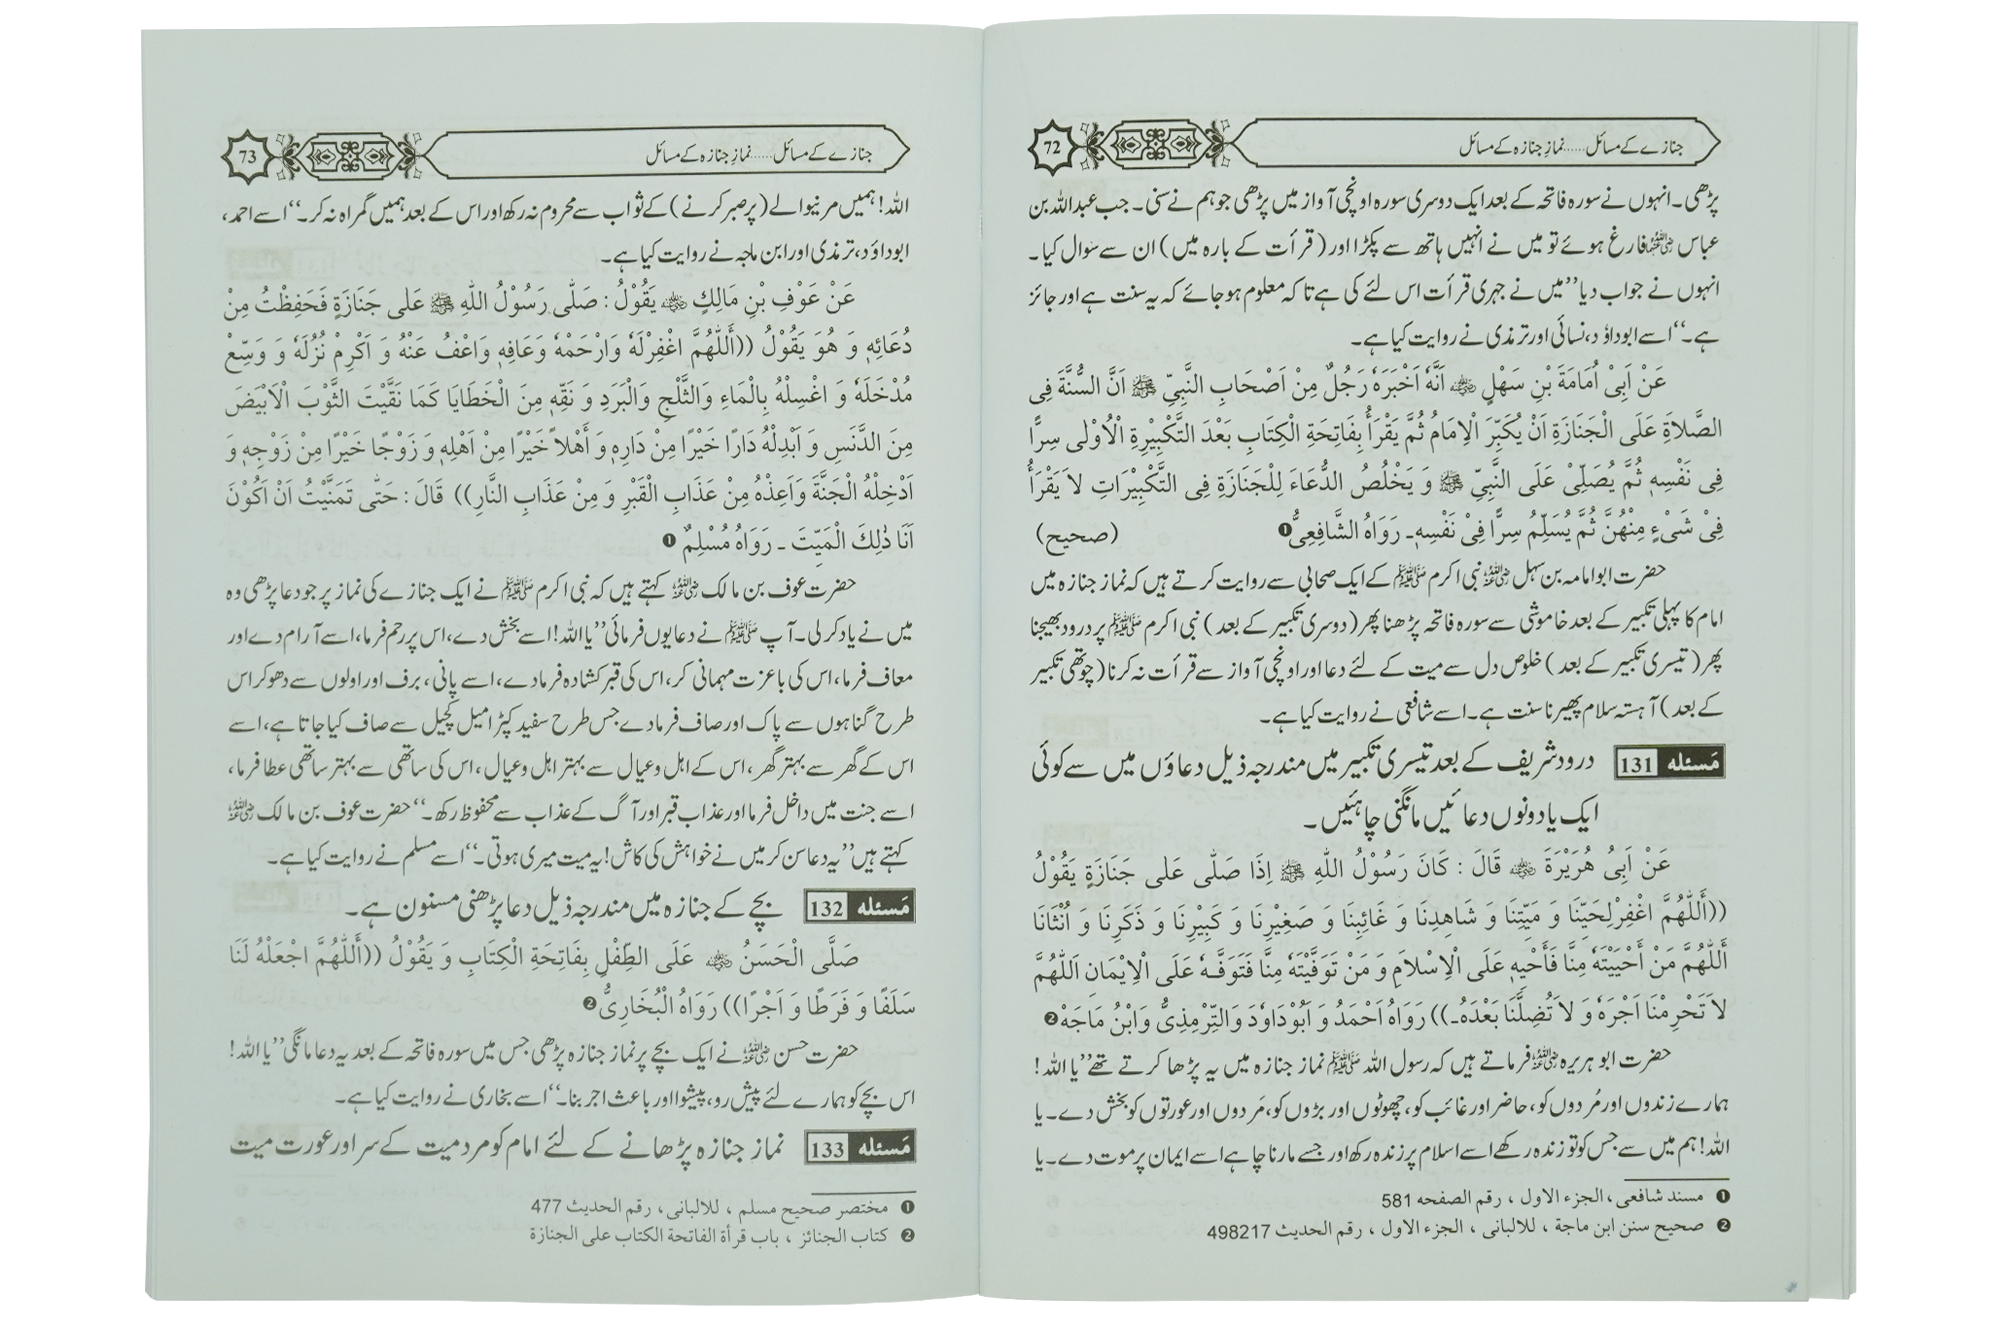 جنازے کے مسائل.....نمازِ جنازہ کے مسائل
72
پڑھی۔ انہوں نے سورہ فاتحہ کے بعد ایک دوسری سورہ اونچی آواز میں پڑھی جو ہم نے سنی۔ جب عبداللہ بن
عباس رضی اللہ عنہما فارغ ہوئے تو میں نے انہیں ہاتھ سے پکڑا اور (قرأت کے بارہ میں) ان سے سوال کیا۔
انہوں نے جواب دیا ’’میں نے جہری قرأت اس لئے کی ہے تاکہ معلوم ہو جائے کہ یہ سنت ہے اور جائز
ہے۔‘‘ اسے ابوداؤد، نسائی اور ترمذی نے روایت کیا ہے۔
عَنْ اَبِیْ اُمَامَةَ بْنِ سَهْلٍ ﷜ اَنَّهٗ اَخْبَرَهٗ رَجُلٌ مِنْ اَصْحَابِ النَّبِیِّ ﷺ اَنَّ السُّنَّةَ فِی
الصَّلاَةِ عَلَی الْجَنَازَةِ اَنْ یُکَبِّرَ الْاِمَامُ ثُمَّ یَقْرَأُ بِفَاتِحَةِ الْکِتَابِ بَعْدَ التَّکْبِیْرَةِ الْاُوْلٰی سِرًّا
فِی نَفْسِهٖ ثُمَّ یُصَلِّیْ عَلَی النَّبِیِّ ﷺ وَ یَخْلُصُ الدُّعَاءَ لِلْجَنَازَةِ فِی التَّکْبِیْرَاتِ لاَ یَقْرَأُ
فِیْ شَیْءٍ مِنْهُنَّ ثُمَّ یُسَلِّمُ سِرًّا فِیْ نَفْسِهٖ۔ رَوَاهُ الشَّافِعِیُّ❶ (صحیح)
حضرت ابوامامہ بن سہل رضی اللہ عنہ نبی اکرم ﷺ کے ایک صحابی سے روایت کرتے ہیں کہ نماز جنازہ میں
امام کا پہلی تکبیر کے بعد خاموشی سے سورہ فاتحہ پڑھنا پھر (دوسری تکبیر کے بعد) نبی اکرم ﷺ پر درود بھیجنا
پھر (تیسری تکبیر کے بعد) خلوص دل سے میت کے لئے دعا اور اونچی آواز سے قرأت نہ کرنا (چوتھی تکبیر
کے بعد) آہستہ سلام پھیرنا سنت ہے۔ اسے شافعی نے روایت کیا ہے۔
مَسئله 131 درود شریف کے بعد تیسری تکبیر میں مندرجہ ذیل دعاؤں میں سے کوئی
ایک یا دونوں دعائیں مانگنی چاہئیں۔
عَنْ اَبِیْ هُرَیْرَةَ ﷜ قَالَ : کَانَ رَسُوْلُ اللّٰهِ ﷺ اِذَا صَلّٰی عَلٰی جَنَازَةٍ یَقُوْلُ
((أَللّٰهُمَّ اغْفِرْلِحَیِّنَا وَ مَیِّتِنَا وَ شَاهِدِنَا وَ غَائِبِنَا وَ صَغِیْرِنَا وَ کَبِیْرِنَا وَ ذَکَرِنَا وَ اُنْثَانَا
أَللّٰهُمَّ مَنْ أَحْیَیْتَهٗ مِنَّا فَأَحْیِهٖ عَلَی الْاِسْلاَمِ وَ مَنْ تَوَفَّیْتَهٗ مِنَّا فَتَوَفَّهٗ عَلَی الْاِیْمَانِ اَللّٰهُمَّ
لاَ تَحْرِمْنَا اَجْرَهٗ وَ لاَ تُضِلَّنَا بَعْدَهُ۔)) رَوَاهُ اَحْمَدُ وَ اَبُوْدَاوٗدَ وَالتِّرْمِذِیُّ وَابْنُ مَاجَه❷
حضرت ابو ہریرہ رضی اللہ عنہ فرماتے ہیں کہ رسول اللہ ﷺ نماز جنازہ میں یہ پڑھا کرتے تھے ’’یا اللہ!
ہمارے زندوں اور مُردوں کو، حاضر اور غائب کو، چھوٹوں اور بڑوں کو، مَردوں اور عورتوں کو بخش دے۔ یا
اللہ! ہم میں سے جس کو تو زندہ رکھے اسے اسلام پر زندہ رکھ اور جسے مارنا چاہے اسے ایمان پر موت دے۔ یا
❶ مسند شافعی ، الجزء الاول ، رقم الصفحه 581
❷ صحیح سنن ابن ماجة ، للالبانی ، الجزء الاول ، رقم الحدیث 498217
جنازے کے مسائل.....نمازِ جنازہ کے مسائل
73
اللہ! ہمیں مرنیوالے (پر صبر کرنے) کے ثواب سے محروم نہ رکھ اور اس کے بعد ہمیں گمراہ نہ کر۔‘‘ اسے احمد،
ابوداؤد، ترمذی اور ابن ماجہ نے روایت کیا ہے۔
عَنْ عَوْفِ بْنِ مَالِكٍ ﷜ یَقُوْلُ : صَلّٰی رَسُوْلُ اللّٰهِ ﷺ عَلٰی جَنَازَةٍ فَحَفِظْتُ مِنْ
دُعَائِهٖ وَ هُوَ یَقُوْلُ ((أَللّٰهُمَّ اغْفِرْلَهٗ وَارْحَمْهٗ وَعَافِهٖ وَاعْفُ عَنْهُ وَ اَکْرِمْ نُزُلَهٗ وَ وَسِّعْ
مُدْخَلَهٗ وَ اغْسِلْهُ بِالْمَاءِ وَالثَّلْجِ وَالْبَرَدِ وَ نَقِّهٖ مِنَ الْخَطَایَا کَمَا نَقَّیْتَ الثَّوْبَ الْاَبْیَضَ
مِنَ الدَّنَسِ وَ اَبْدِلْهُ دَارًا خَیْرًا مِنْ دَارِهٖ وَ أَهْلاً خَیْرًا مِنْ اَهْلِهٖ وَ زَوْجًا خَیْرًا مِنْ زَوْجِهٖ وَ
اَدْخِلْهُ الْجَنَّةَ وَاَعِذْهُ مِنْ عَذَابِ الْقَبْرِ وَ مِنْ عَذَابِ النَّارِ)) قَالَ : حَتّٰی تَمَنَّیْتُ اَنْ اَکُوْنَ
اَنَا ذٰلِكَ الْمَیِّتَ ۔ رَوَاهُ مُسْلِمٌ ❶
حضرت عوف بن مالک رضی اللہ عنہ کہتے ہیں کہ نبی اکرم ﷺ نے ایک جنازے کی نماز پر جو دعا پڑھی وہ
میں نے یاد کر لی۔ آپ ﷺ نے دعا یوں فرمائی ’’یا اللہ! اسے بخش دے، اس پر رحم فرما، اسے آرام دے اور
معاف فرما، اس کی باعزت مہمانی کر، اس کی قبر کشادہ فرما دے، اسے پانی، برف اور اولوں سے دھو کر اس
طرح گناہوں سے پاک اور صاف فرما دے جس طرح سفید کپڑا میل کچیل سے صاف کیا جاتا ہے، اسے
اس کے گھر سے بہتر گھر، اس کے اہل وعیال سے بہتر اہل وعیال، اس کی ساتھی سے بہتر ساتھی عطا فرما،
اسے جنت میں داخل فرما اور عذاب قبر اور آگ کے عذاب سے محفوظ رکھ۔‘‘ حضرت عوف بن مالک رضی اللہ عنہ
کہتے ہیں ’’یہ دعا سن کر میں نے خواہش کی کاش! یہ میت میری ہوتی۔‘‘ اسے مسلم نے روایت کیا ہے۔
مَسئله 132 بچے کے جنازہ میں مندرجہ ذیل دعا پڑھنی مسنون ہے۔
صَلَّی الْحَسَنُ ﷜ عَلَی الطِّفْلِ بِفَاتِحَةِ الْکِتَابِ وَ یَقُوْلُ ((أَللّٰهُمَّ اجْعَلْهُ لَنَا
سَلَفًا وَ فَرَطًا وَ اَجْرًا)) رَوَاهُ الْبُخَارِیُّ❷
حضرت حسن رضی اللہ عنہ نے ایک بچے پر نماز جنازہ پڑھی جس میں سورہ فاتحہ کے بعد یہ دعا مانگی ’’یا اللہ!
اس بچے کو ہمارے لئے پیش رو، پیشوا اور باعث اجر بنا۔‘‘ اسے بخاری نے روایت کیا ہے۔
مَسئله 133 نماز جنازہ پڑھانے کے لئے امام کو مرد میت کے سر اور عورت میت
❶ مختصر صحیح مسلم ، للالبانی، رقم الحدیث 477
❷ کتاب الجنائز ، باب قرأة الفاتحة الکتاب علی الجنازة